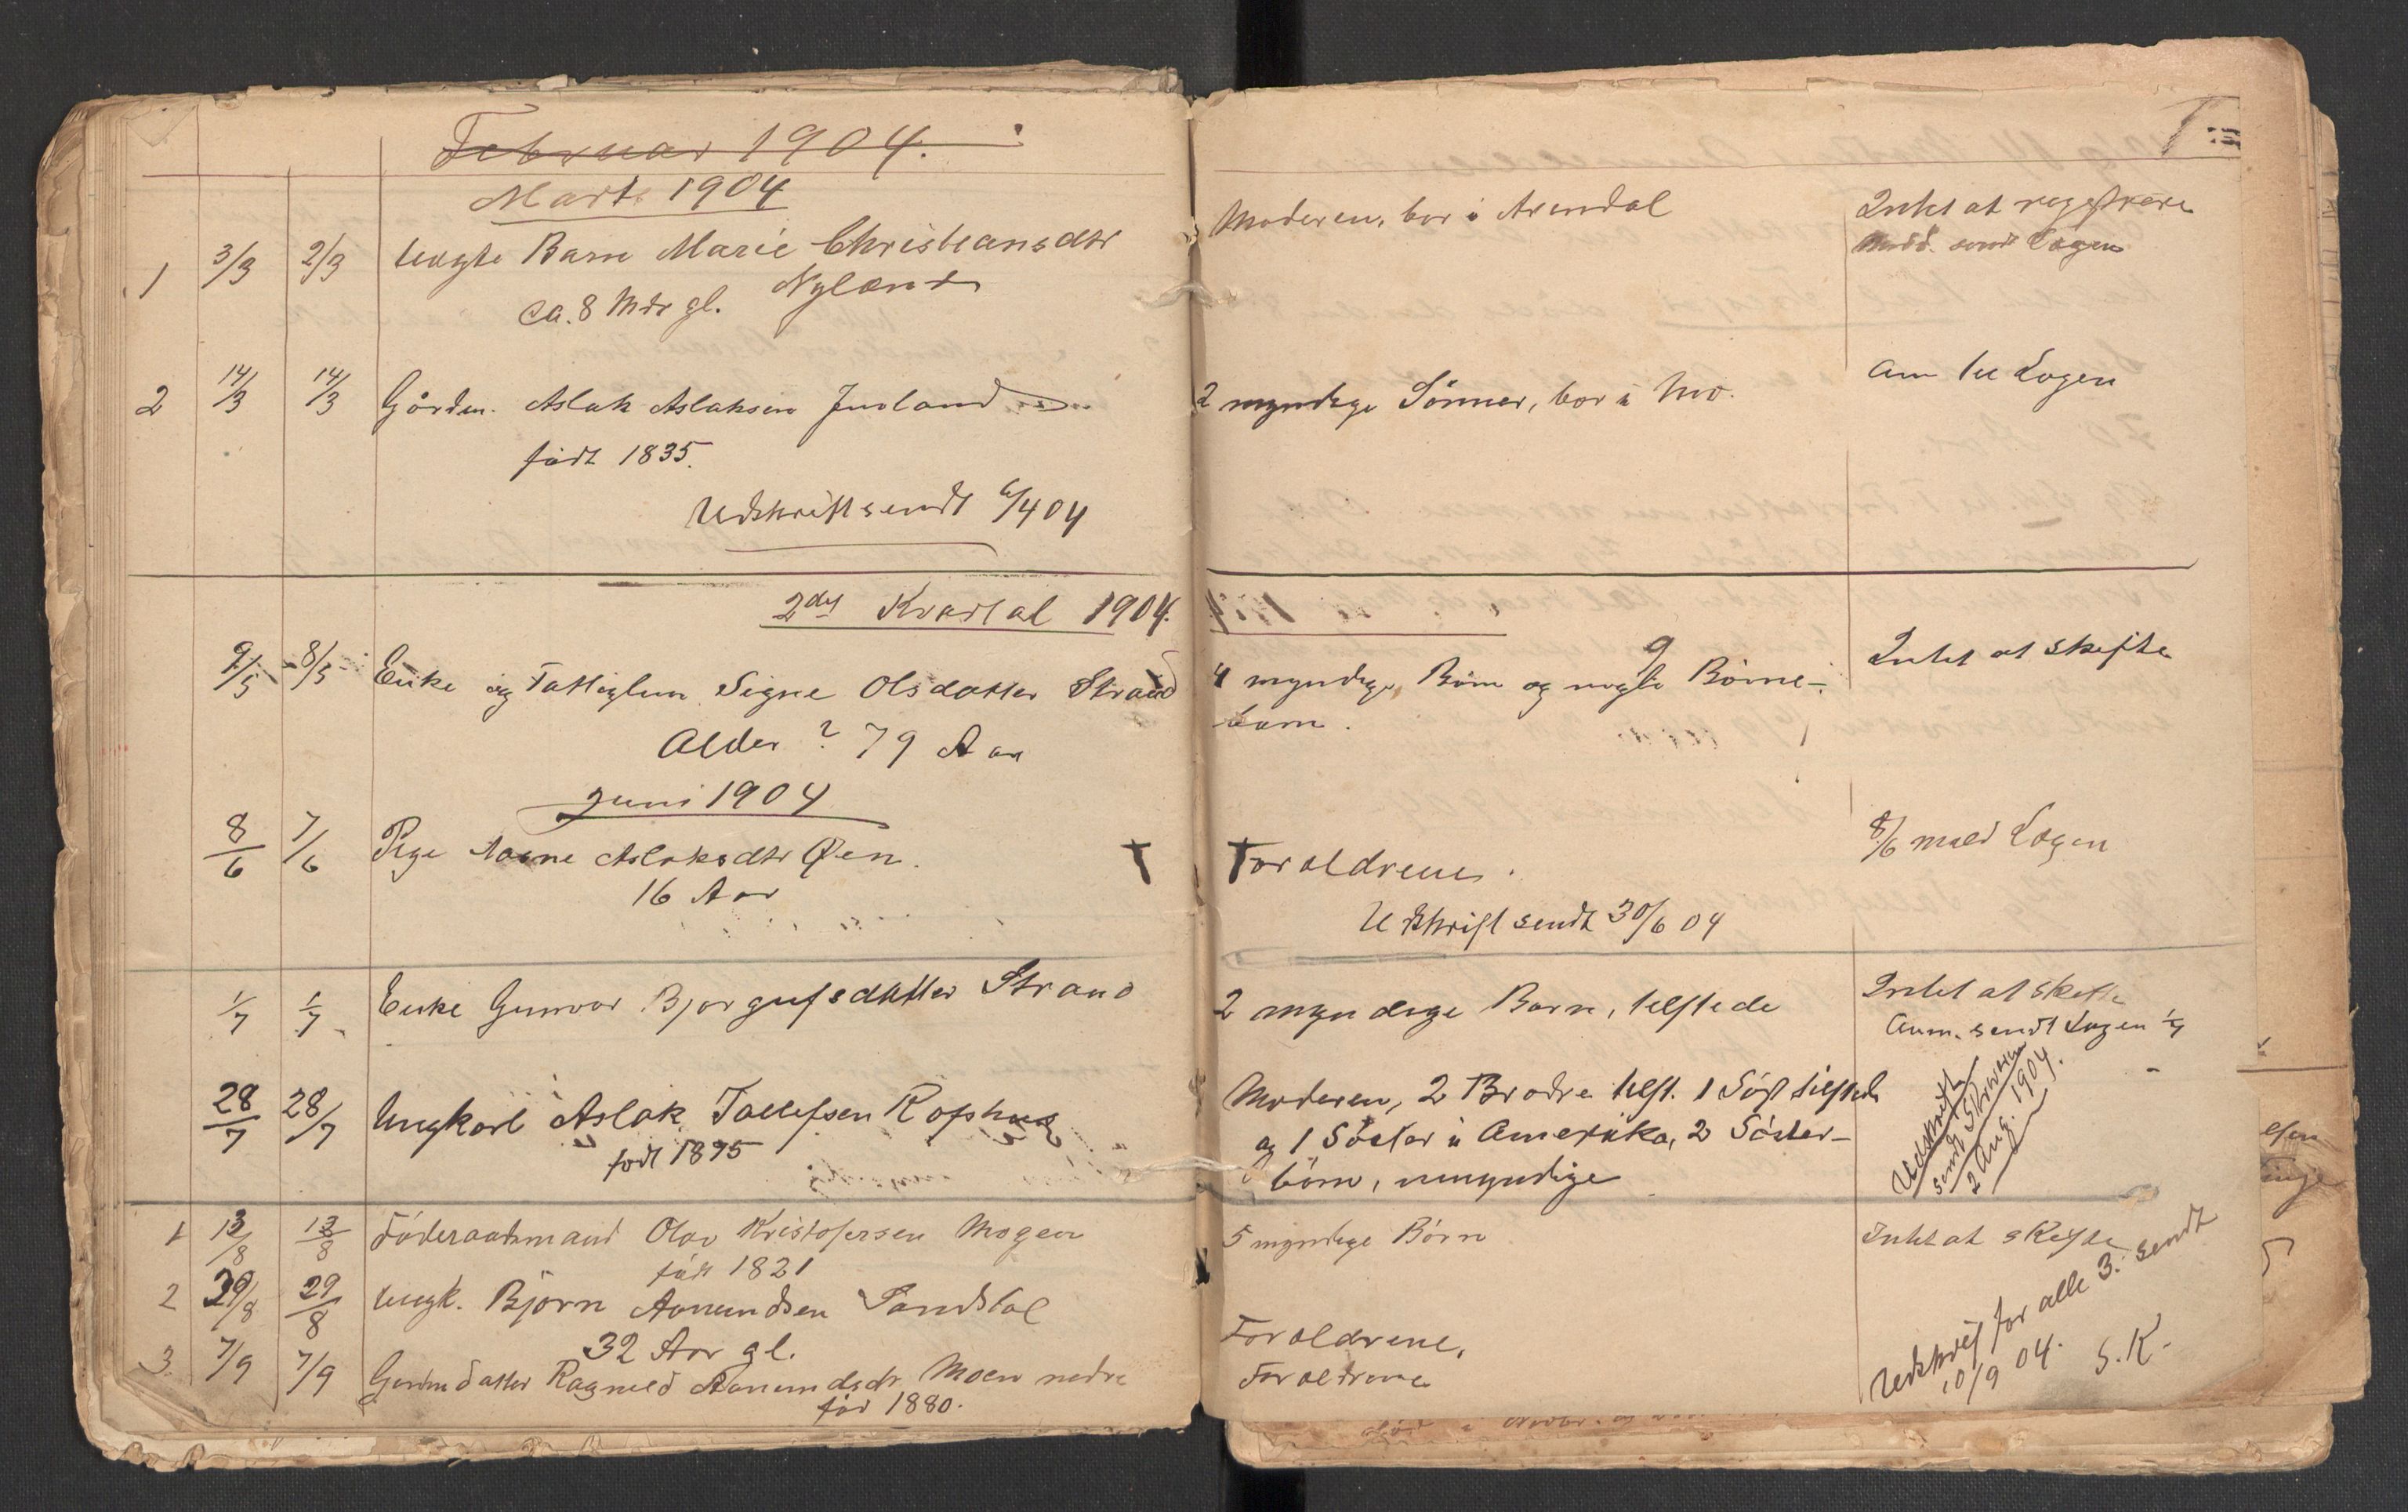 Februar 1904.
Marts 1904
1 3/3 2/3 Uægte Barn Marie Christiansdtr
Nylænd
ca. 8 Mdr gl.
Moderen, bor i Arendal
Intet at registrere
sendt Lægen
2 14/3 14/3 Gårdm. Aslak Aslaksen Juvland
født 1835.
Udskrift sendt 6/4 04
2 myndige Sönner, bor i Mo.
Anm til Lægen
2det Kvartal 1904.
9/5 8/5 Enke og Fattiglem Signe Olsdatter Strand
Alder ? 79 Aar
4 myndige Börn og nogle Børne-
barn.
Intet at skifte
Juni 1904
8/6 7/6 Pige Aasne Aslaksdtr Øen.
16 Aar
Forældrene.
Udskrift sendt 30/6 04
8/6 meld Lægen
1/7 1/7 Enke Gunvor Bjørgufsdatter Strand
2 myndige Børn, tilstede
Intet at skifte
Anm. sendt Lægen 1/7
28/7 28/7 Ungkarl Aslak Tallefsen Rofshus
født 1875
Moderen, 2 Brødre tilst. 1 Söst tilstede
og 1 Söster i Amerika, 2 Söster-
börn, umyndige
Udskrift
sendt Skriveren
2 Aug. 1904.
1 13/8 13/8 Föderaadsmand Olav Kristofersen Mogen
født 1821
5 myndige Börn
Intet at skifte
2 29/8 29/8 Ungk. Björn Aanundsen Sandstøl
32 Aar gl.
Forældrene.
3. 7/9 7/9 Gaardmdatter Ragnild Aanundsdtr Moen nedre
föd 1880.
Forældrene
Udskrift for alle 3. sendt
10/9 04. S.K.